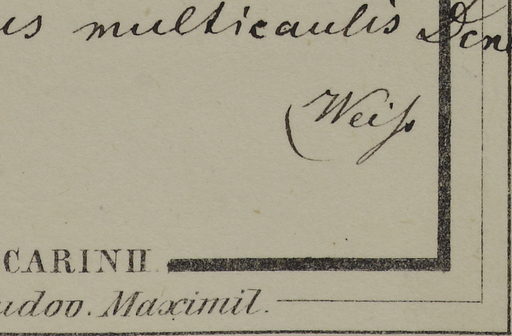 us multicaulis Dcn
(Weiß
CARINII
udov. Maximil.